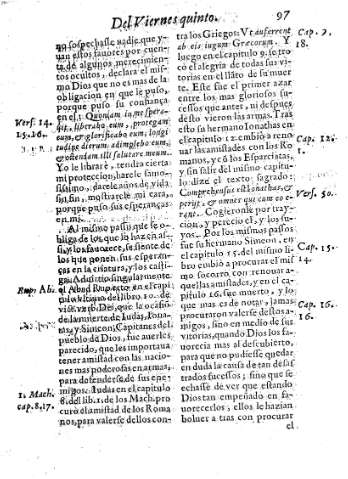 Del Viernes quinto. 97
no sospechasse nadie, que y-
uan estos fauores por cuen-
ta de algunos merecimien-
tos ocultos, declara el mis-
mo Dios que no es mas de la
obligacion en que le puso,
porque puso su confiança
en el: Quoniam in me spera-
uit, liberabo eum, protegam
eum, & glorificabo eum, longi-
tudine dierum adimplebo eum,
& ostendam illi salutare meum.
Yo le librarè, tendra cierta
mi proteccion, harele famo-
sissimo, darele años de vida
sin fin, mostrarele mi cara,
porque puso sus esperanças
en mi.
Al mismo passo que le o-
bliga de los que lo hazen assi,
y los fauorece, se siente de
los que ponen sus esperan-
ças en la criatura, y los casti-
ga. Aduirtio singularmente
el Abad Ruperto en el capi-
tulo del libro 10. de
Verb. Dei, que la ocasió
de la muerte de Iudas, Iona-
tas, y Simeon, Capitanes del
pueblo de Dios, fue auerles
parecido, que les importaua
tener amistad con las nacio-
nes mas poderosas en armas,
para defenderse de sus ene-
migos. Iudas en el capitulo
8. del lib. 1. de los Mach. pro
curò la amistad de los Roma
nos, para valerse dellos con-
Vers. 14.
15. 16.
Rup. Ab.
1. Mach.
cap. 8. 17.
tra los Griegos: Vt auferrent
ab eis iugum Græcorum. Y
luego en el capitulo 9. se tro
cò el alegria de todas sus vi-
torias en el llãto de su muer
te. Este fue el primer azar
entre los mas gloriosos su-
cessos que antes, ni despues
desto vieron las armas. Tras
esto su hermano Ionathas en
el capitulo 12. embiò a reno
uar las amistades con los Ro
manos, y cõ los Esparciatas,
y sin salir del mismo capitu-
lo dize el texto sagrado:
Comprehensus est Ionathas, &
perijt, & omnes qui cum eo e-
rant. Cogieronle por tray-
cion, y perecio el, y los su-
yos. Por los mismos passos
fue su hermano Simeon, en
el capitulo 15. del mismo li-
bro embiò a procurar el mis
mo socorro con renouar a-
quellas amistades, y en el ca-
pitulo 16. fue muerto, y lo
que mas es de notar, jamas
procuraron valerse destas a-
migos, sino en medio de sus
vitorias, quando Dios los fa-
uorecia mas al descubierto,
para que no pudiesse quedar
en duda la causa de tan desas
trados sucessos; sino que se
echasse de ver que estando
Dios tan empeñado en fa-
uorecerlos, ellos le hazian
boluer a tras con procurar
el
Cap. 7.
18.
Cap. 12.
1.
Vers. 50.
Cap. 15.
14.
Cap. 16.
16.